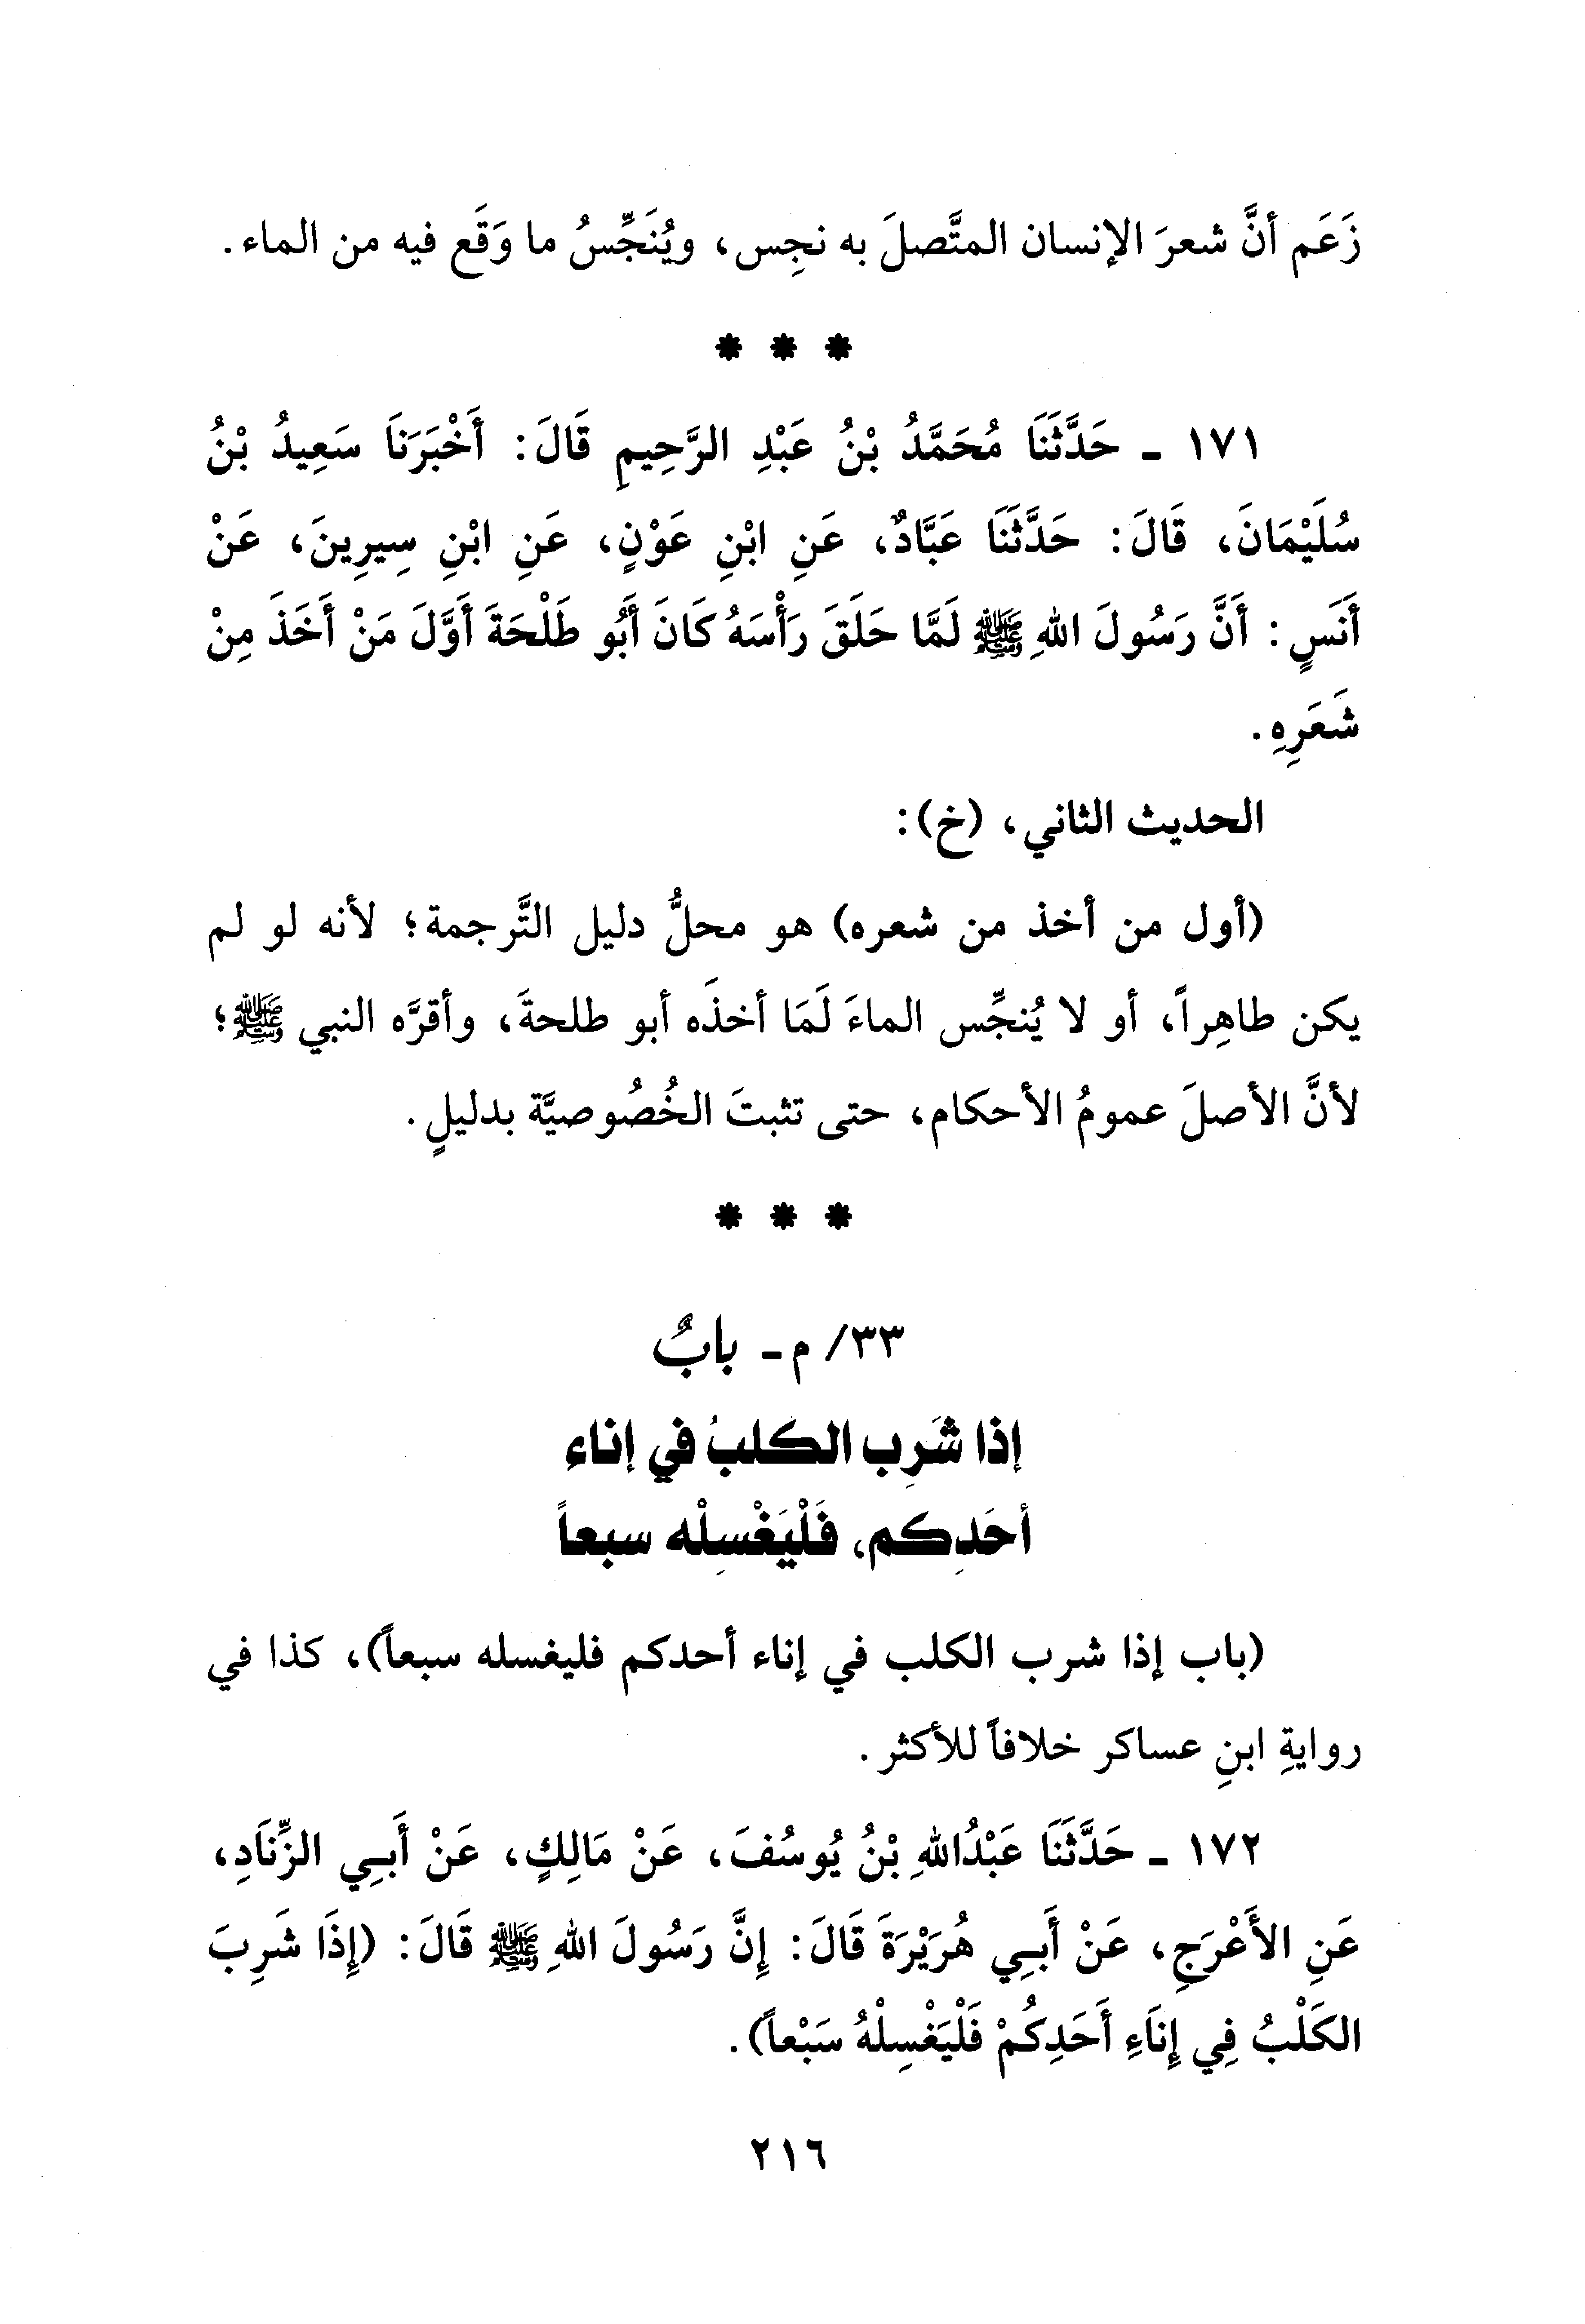 زَعَم أنَّ شعرَ الإنسان المتَّصلَ به نجِس، ويُنَجِّسُ ما وَقَع فيه من الماء.
* * *
١٧١ - حَدَّثَنَا مُحَمَّدُ بْنُ عَبْدِ الرَّحِيمِ قَالَ: أَخْبَرَنَا سَعِيدُ بْنُ
سُلَيْمَانَ، قَالَ: حَدَّثَنَا عَبَّادٌ، عَنِ ابْنِ عَوْنٍ، عَنِ ابْنِ سِيرِينَ، عَنْ
أَنَسٍ: أَنَّ رَسُولَ اللهِ ﷺ لَمَّا حَلَقَ رَأْسَهُ كَانَ أَبُو طَلْحَةَ أَوَّلَ مَنْ أَخَذَ مِنْ
شَعَرِهِ.
الحديث الثاني، (خ):
(أول من أخذ من شعره) هو محلُّ دليل التَّرجمة؛ لأنه لو لم
يكن طاهِراً، أو لا يُنجِّس الماءَ لَمَا أخذَه أبو طلحةَ، وأقرَّه النبي ﷺ؛
لأنَّ الأصلَ عمومُ الأحكام، حتى تثبتَ الخُصُوصيَّة بدليلٍ.
* * *
٣٣/ م - بابٌ
إذا شَرِب الكلبُ في إناء
أحَدِكم، فَلْيَغْسِلْه سبعاً
(باب إذا شرب الكلب في إناء أحدكم فليغسله سبعاً)، كذا في
روايةِ ابنِ عساكر خلافاً للأكثر.
١٧٢ - حَدَّثَنَا عَبْدُاللهِ بْنُ يُوسُفَ، عَنْ مَالِكٍ، عَنْ أَبِي الزِّنَادِ،
عَنِ الأَعْرَجِ، عَنْ أَبِي هُرَيْرَةَ قَالَ: إِنَّ رَسُولَ اللهِ ﷺ قَالَ: (إِذَا شَرِبَ
الكَلْبُ فِي إِنَاءِ أَحَدِكُمْ فَلْيَغْسِلْهُ سَبْعاً).
٢١٦